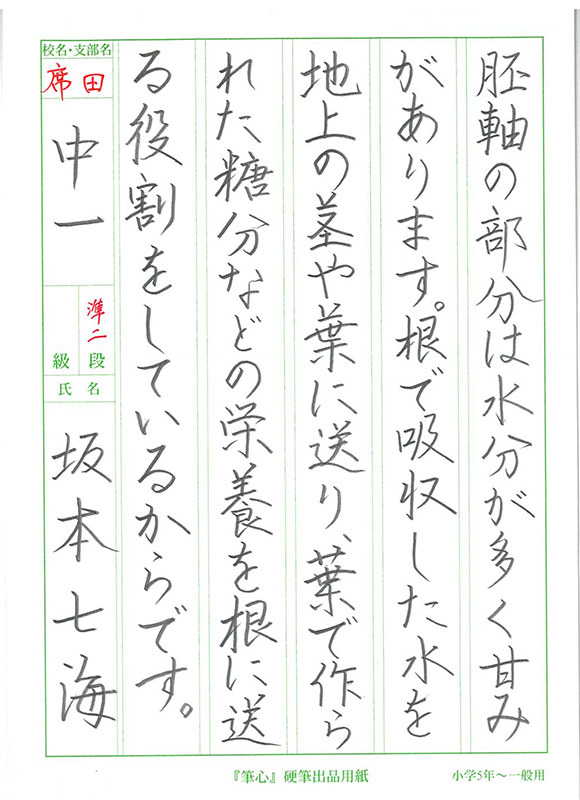 胚軸の部分は水分が多く甘み
があります。根で吸収した水を
地上の茎や葉に送り、葉で作ら
れた糖分などの栄養を根に送
る役割をしているからです。
校名・支部名
席田
中一
準二
段
級
氏名
坂本七海
『筆心』硬筆出品用紙
小学5年〜一般用